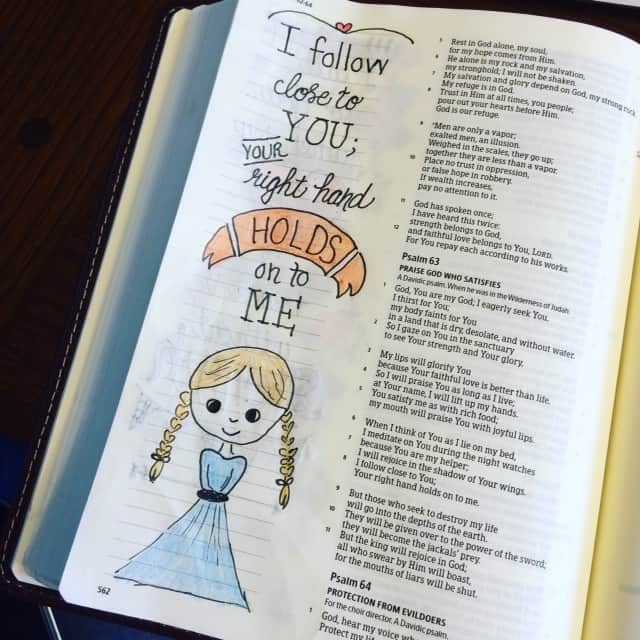 I follow
close to
YOU;
YOUR
right hand
HOLDS
on to
ME
562
5 Rest in God alone, my soul,
for my hope comes from Him.
6 He alone is my rock and my salvation,
my stronghold; I will not be shaken.
7 My salvation and glory depend on God, my strong rock.
My refuge is in God.
8 Trust in Him at all times, you people;
pour out your hearts before Him.
God is our refuge.
9 Men are only a vapor;
exalted men, an illusion.
Weighed in the scales, they go up;
together they are less than a vapor.
10 Place no trust in oppression,
or false hope in robbery.
If wealth increases,
pay no attention to it.
11 God has spoken once;
I have heard this twice:
strength belongs to God,
12 and faithful love belongs to You, LORD.
For You repay each according to his works.
Psalm 63
PRAISE GOD WHO SATISFIES
A Davidic psalm. When he was in the Wilderness of Judah.
1 God, You are my God; I eagerly seek You.
I thirst for You;
my body faints for You
in a land that is dry, desolate, and without water.
2 So I gaze on You in the sanctuary
to see Your strength and Your glory.
3 My lips will glorify You
because Your faithful love is better than life.
4 So I will praise You as long as I live;
at Your name, I will lift up my hands.
5 You satisfy me as with rich food;
my mouth will praise You with joyful lips.
6 When I think of You as I lie on my bed,
I meditate on You during the night watches
7 because You are my helper;
I will rejoice in the shadow of Your wings.
8 I follow close to You;
Your right hand holds on to me.
9 But those who seek to destroy my life
will go into the depths of the earth.
10 They will be given over to the power of the sword;
they will become the jackals' prey.
11 But the king will rejoice in God;
all who swear by Him will boast,
for the mouths of liars will be shut.
Psalm 64
PROTECTION FROM EVILDOERS
For the choir director. A Davidic psalm.
1 God, hear my voice
Protect my